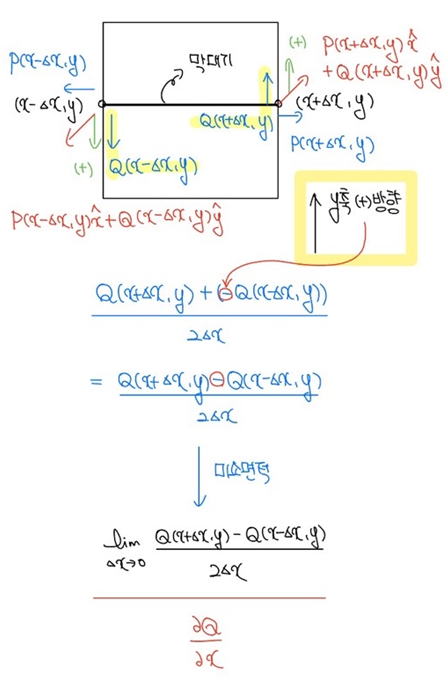 P(x-Δx,y)
(x-Δx,y)
(+)
Q(x-Δx,y)
P(x-Δx,y)x̂+Q(x-Δx,y)ŷ
막대기
(+)
P(x+Δx,y)x̂
+Q(x+Δx,y)ŷ
(x+Δx,y)
Q(x+Δx,y)
P(x+Δx,y)
y축 (+)방향
Q(x+Δx,y)+(-Q(x-Δx,y))
2Δx
= Q(x+Δx,y)-Q(x-Δx,y)
2Δx
미소면적
lim Δx→0 Q(x+Δx,y)-Q(x-Δx,y)
2Δx
∂Q
∂x